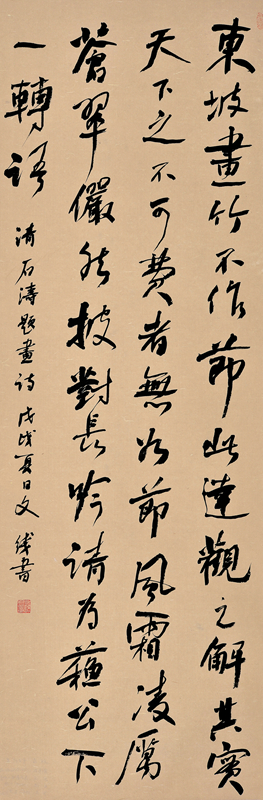 東坡畫竹不作節此達觀之解其實
天下之不可費者無如節風霜凌厲
蒼翠儼然披對長吟請為蘇公下
一轉語 清石濤題畫詩 戊戌夏日文書